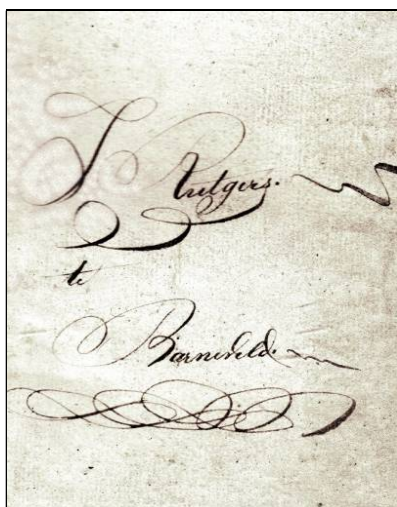 J Rutgers.
te
Barneveld.